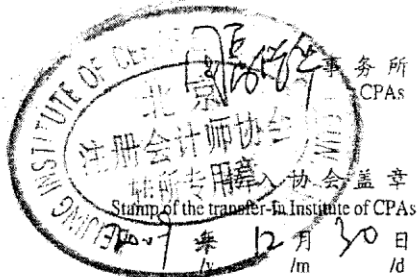 事务所
CPAs
BEIJING INSTITUTE OF CE
北京
注册会计师协会
转所专用章
转入协会盖章
Stamp of the transfer-in Institute of CPAs
年 12 月 30 日
/y /m /d